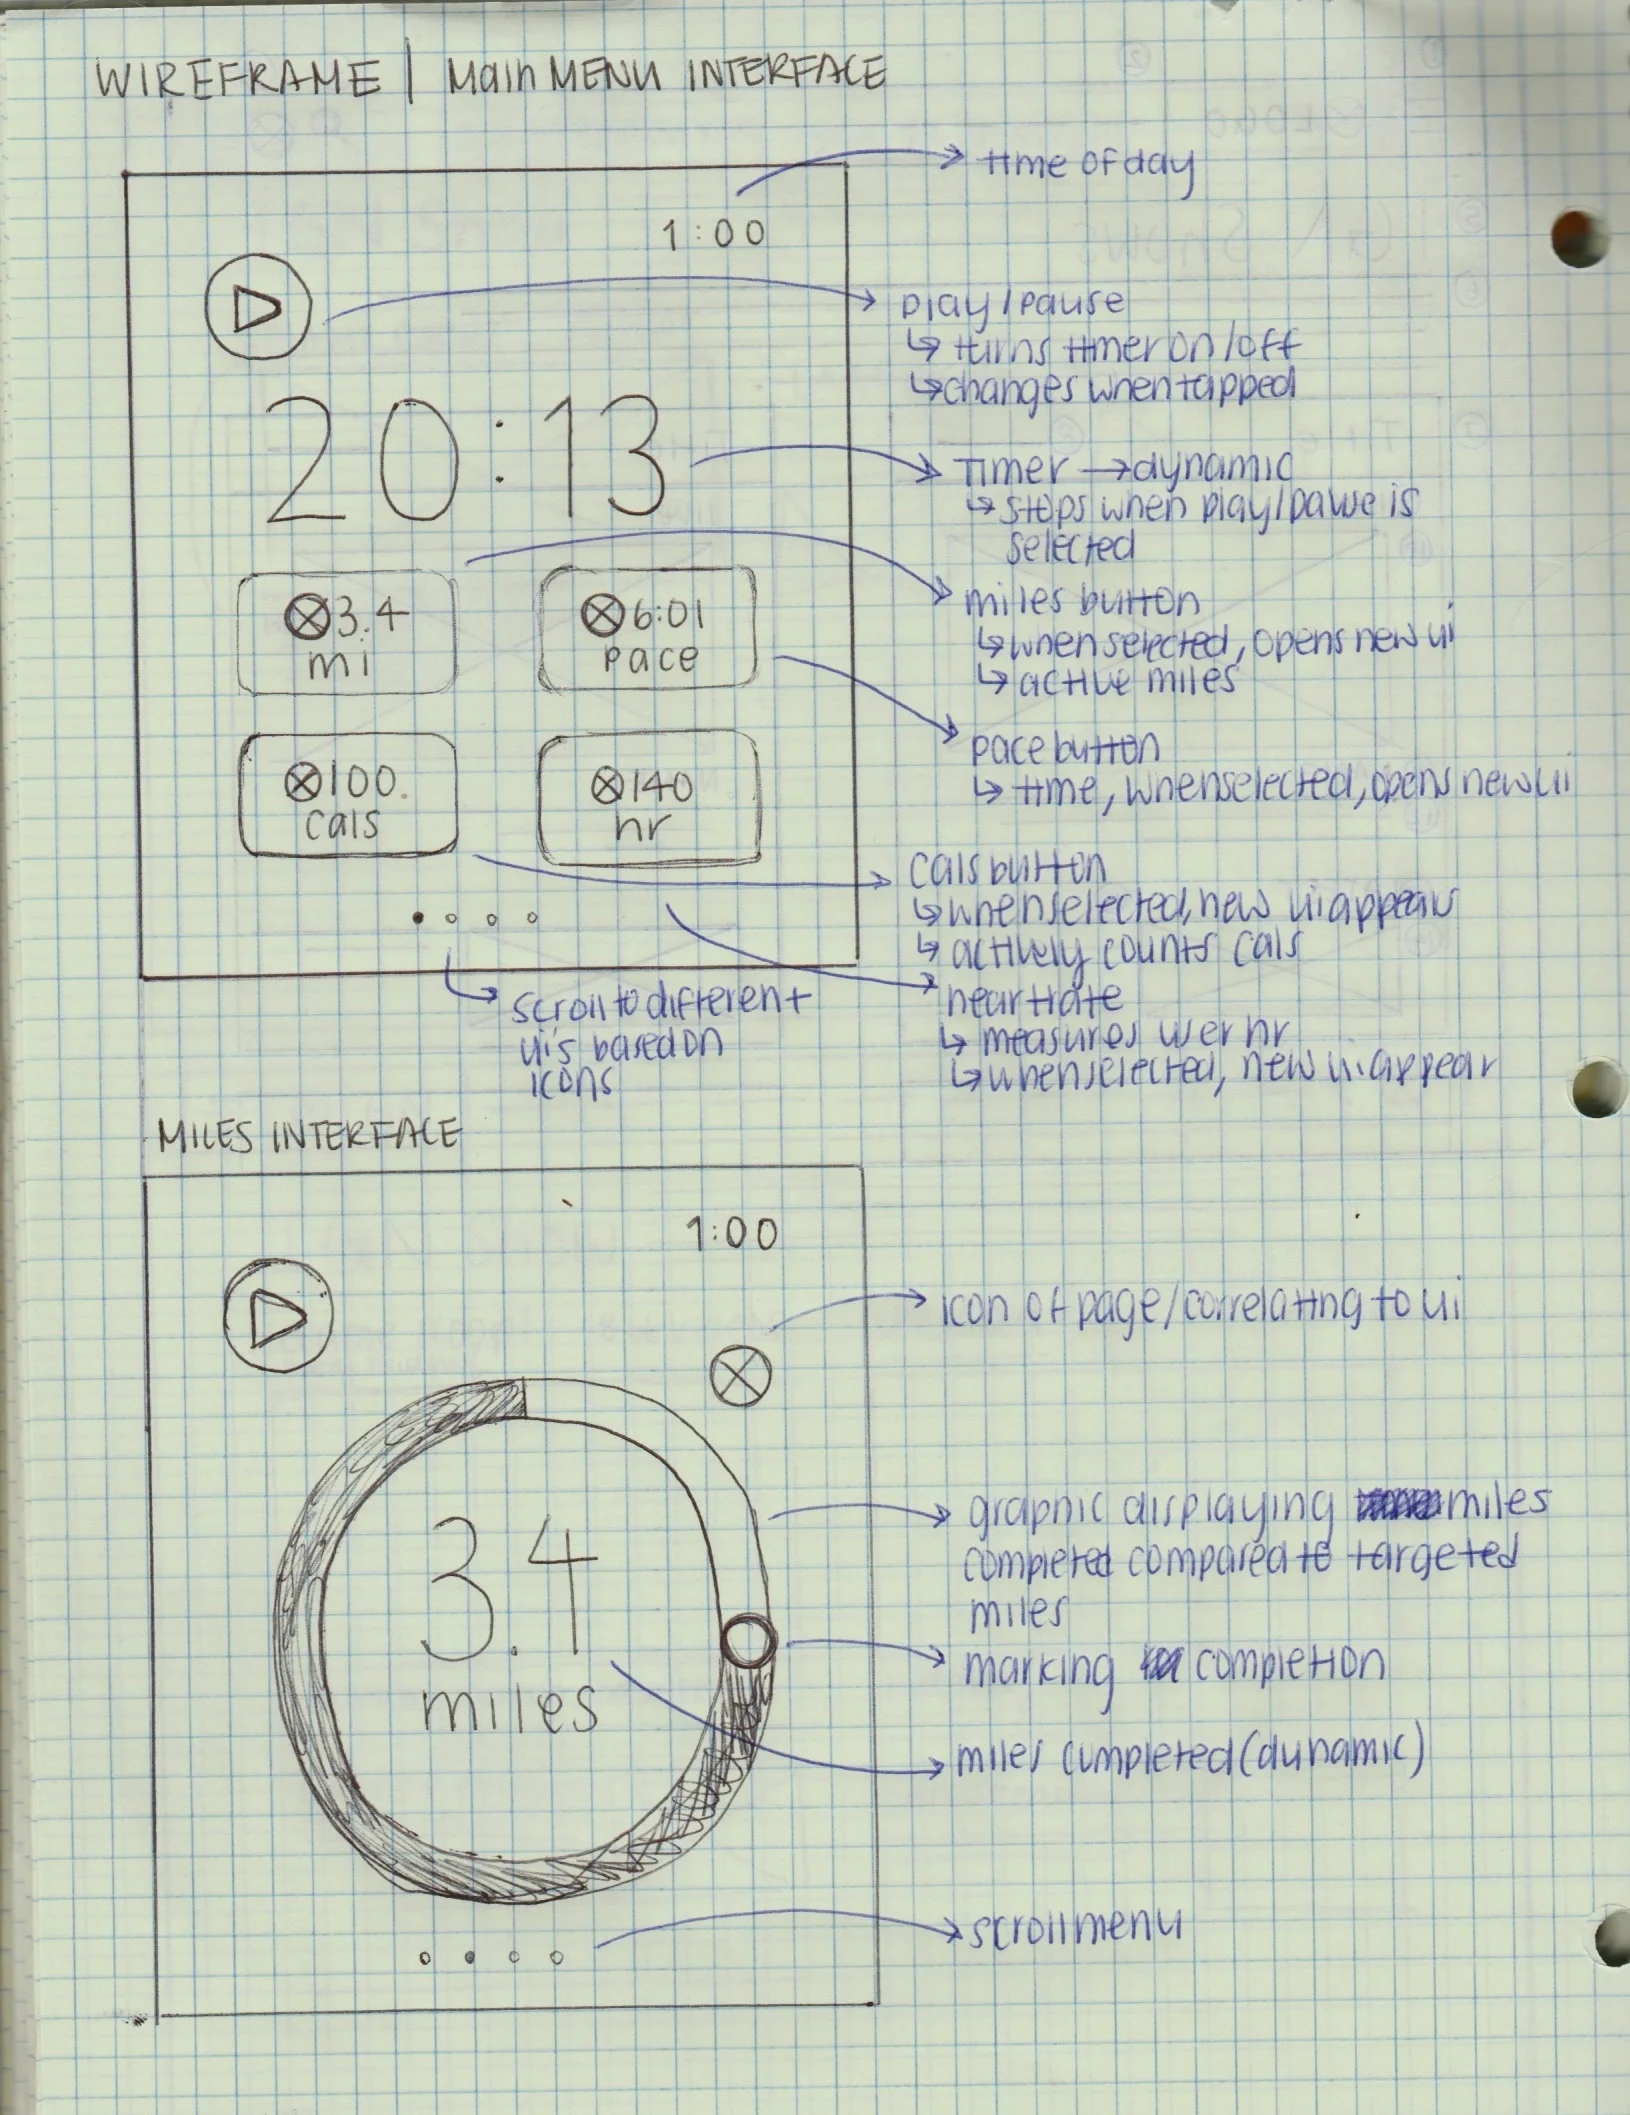 WIREFRAME | Main MENU INTERFACE
time of day
1:00
play/pause
↳ turns timer on/off
↳ changes when tapped
20:13
Timer → dynamic
↳ stops when play/pause is
selected
⊗3.4
mi
⊗6:01
pace
miles button
↳ when selected, opens new ui
↳ active miles
pace button
↳ time, when selected, opens new ui
⊗100.
cals
⊗140
hr
cals button
↳ when selected, new ui appears
↳ actively counts cals
heart rate
↳ measures user hr
↳ when selected, new ui appear
scroll to different
ui's based on
icons
MILES INTERFACE
1:00
icon of page/correlating to ui
graphic displaying miles
completed compared to targeted
miles
3.4
miles
marking completion
miles completed (dynamic)
scroll menu